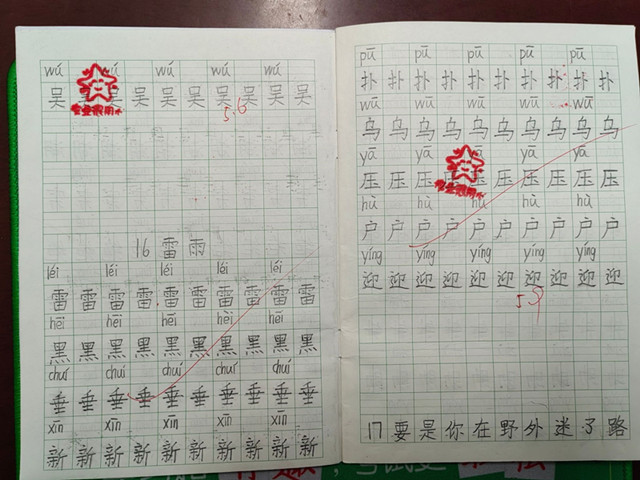 wú wú wú wú wú
吴 吴 吴 吴 吴 吴 吴 吴 吴
5.6
16 雷雨
léi léi léi léi léi
雷 雷 雷 雷 雷 雷 雷 雷 雷 雷
hēi hēi hēi hēi hēi
黑 黑 黑 黑 黑 黑 黑 黑 黑 黑
chuí chuí chuí chuí chuí
垂 垂 垂 垂 垂 垂 垂 垂 垂 垂
xīn xīn xīn xīn xīn
新 新 新 新 新 新 新 新 新 新
pū pū pū pū pū
扑 扑 扑 扑 扑 扑 扑 扑 扑 扑
wū wū wū wū wū
乌 乌 乌 乌 乌 乌 乌 乌 乌 乌
yā yā yā yā
压 压 压 压 压 压 压 压 压
hù hù hù hù hù
户 户 户 户 户 户 户 户 户 户
yíng yíng yíng yíng yíng
迎 迎 迎 迎 迎 迎 迎 迎 迎 迎
5.9
17 要是你在野外迷了路